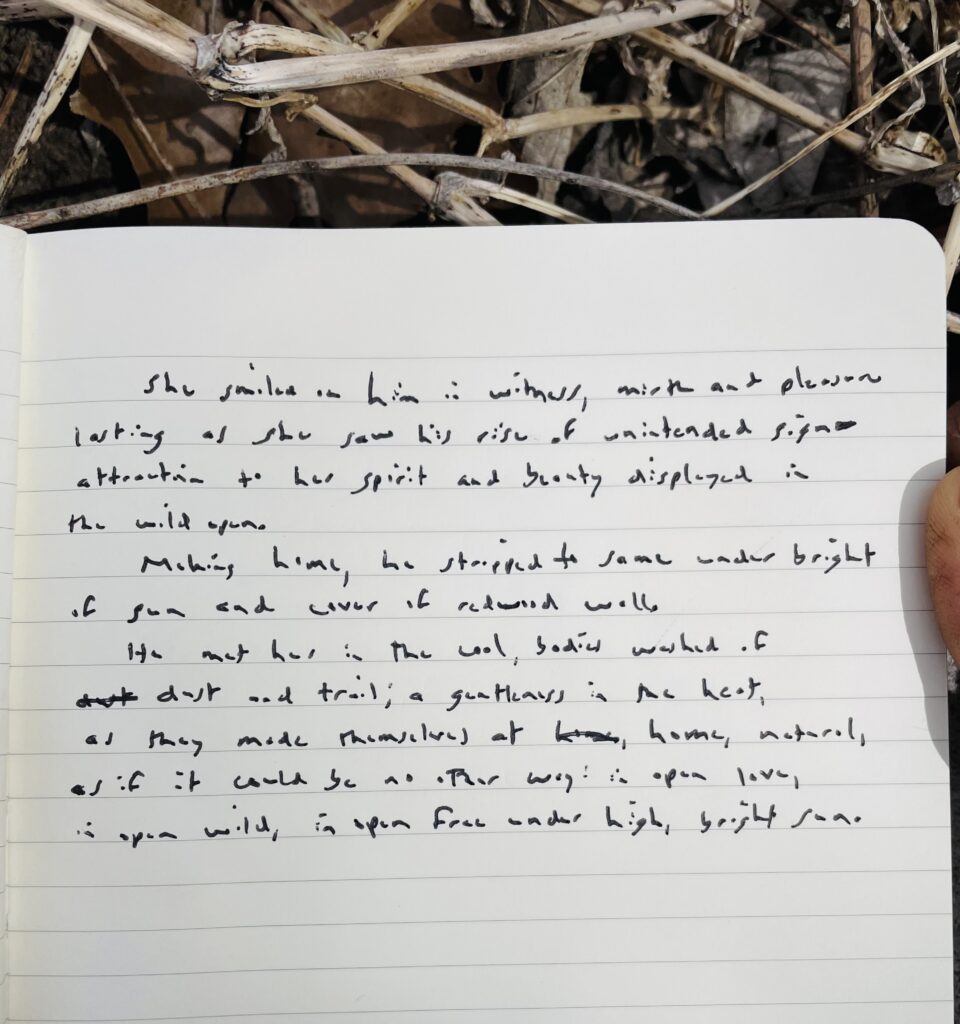 She smiled on him in witness, mirth and pleasure
lasting as she saw his rise of unintended sign
attraction to her spirit and beauty displayed in
the wild open.
Making home, he stripped to same under bright
of sun and cover of redwood wall.
He met her in the cool, bodies washed of
dust dust and trail; a gentleness in the heat,
as they made themselves at home, home, natural,
as if it could be no other way: in open love,
in open wild, in open free under high, bright sun.